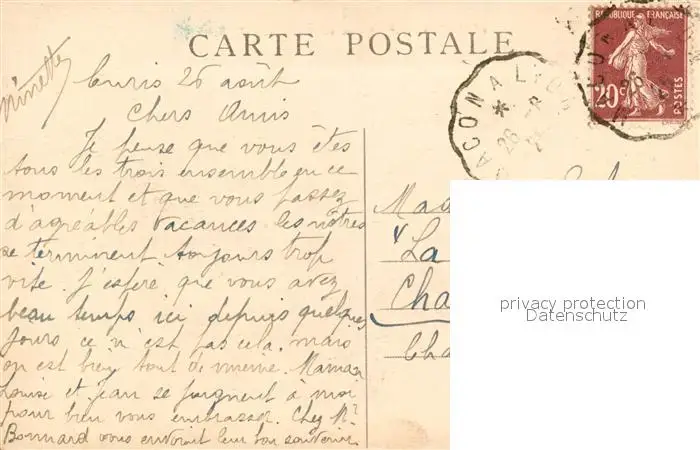 CARTE POSTALE
REPUBLIQUE FRANÇAISE
20c
POSTES
MACON A LYON
26 - 8
Minette
Curis 26 août
Chers Amis
Je pense que vous êtes
tous les trois ensemble en ce
moment et que vous passez
d'agréables vacances les nôtres
se terminent toujours trop
vite. J'espère que vous avez
beau temps ici depuis quelques
jours ce n'est pas cela. mais
on est bien tout de même. Maman
Louise et Jean se joignent à moi
pour bien vous embrasser. Chez Mr
Bonnard vous envoient leur bon souvenir
Mad
La
Cha
Cha
privacy protection
Datenschutz